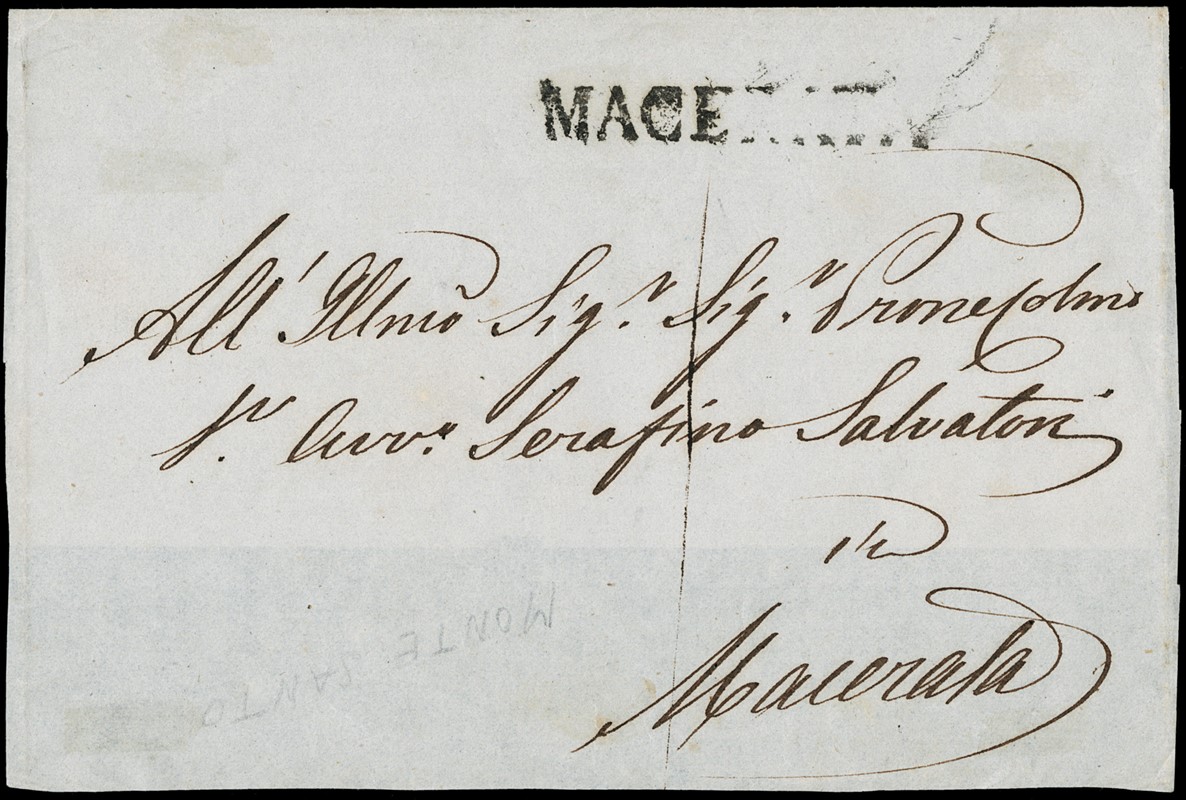 MACERATA
All' Illmo Sigr. Sigr. Prone Colmo
Sr. Avvo. Serafino Salvatori
in
Macerata
MONTE SANTO